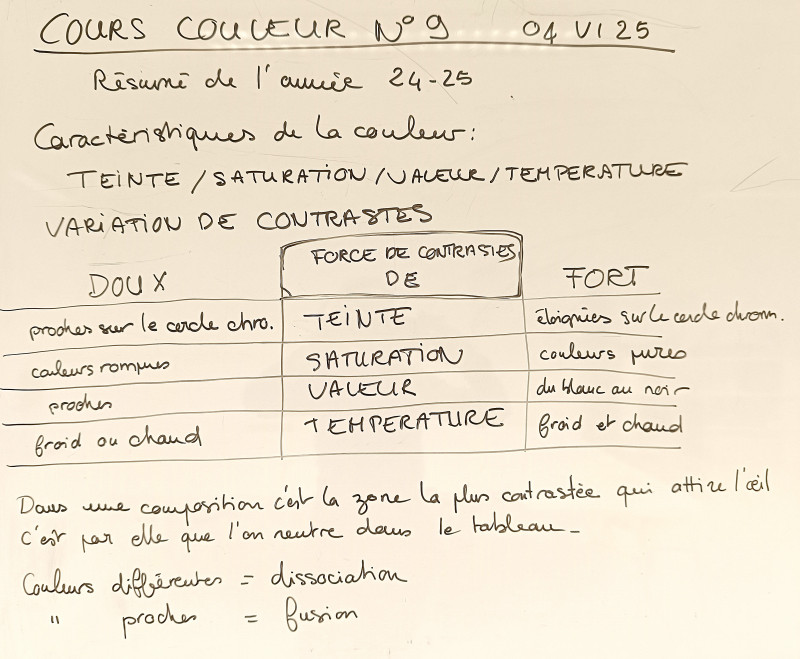 COURS COULEUR N°9 04 VI 25
Résumé de l'année 24-25
Caractéristiques de la couleur:
TEINTE / SATURATION / VALEUR / TEMPERATURE
VARIATION DE CONTRASTES
DOUX FORCE DE CONTRASTES DE FORT
proches sur le cercle chro. TEINTE éloignées sur le cercle chrom.
couleurs rompues SATURATION couleurs pures
proches VALEUR du blanc au noir
froid ou chaud TEMPERATURE froid et chaud
Dans une composition c'est la zone la plus contrastée qui attire l'œil
c'est par elle que l'on rentre dans le tableau_
Couleurs différentes = dissociation
" proches = fusion